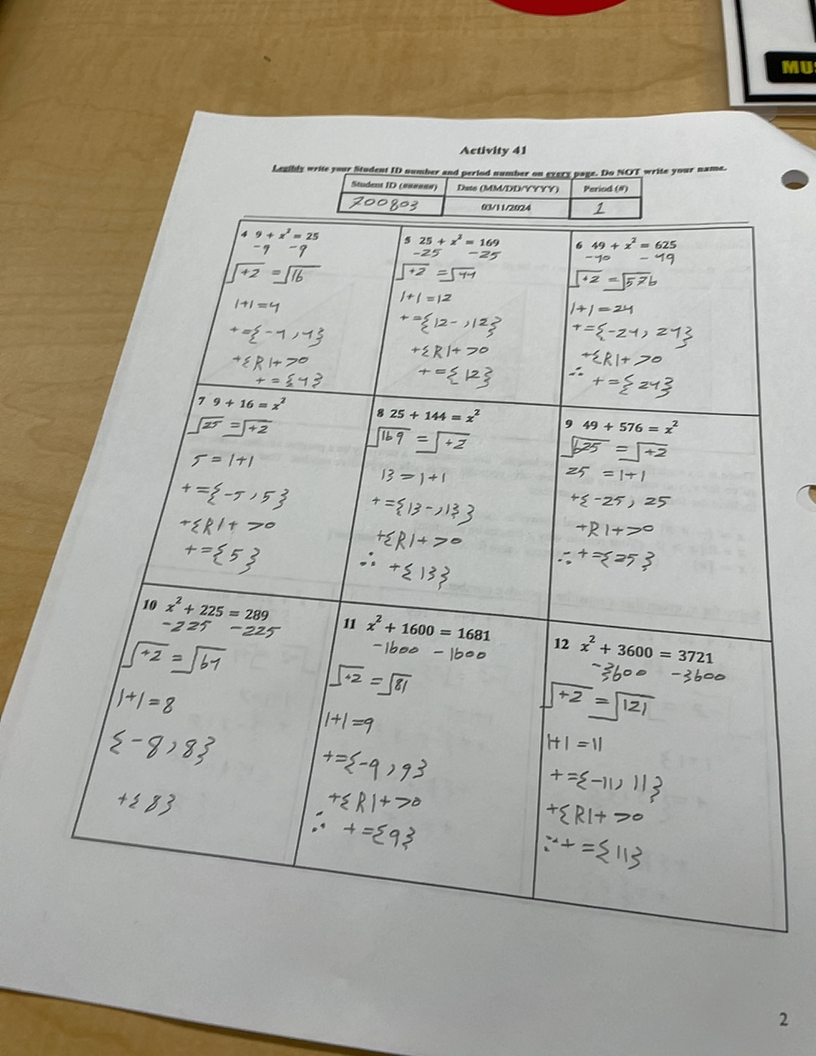 MU
Activity 41
Legibly write your Student ID number and period number on every page. Do NOT write your name.
Student ID (######) Date (MM/DD/YYYY) Period (#)
700803 03/11/2024 1
4 9 + x² = 25
-9 -9
√+2 = √16
|+|=4
+={-4,4}
+{R|+>0
+={4}
5 25 + x² = 169
-25 -25
√+2 = √44
|+|=12
+={12-,12}
+{R|+>0
+={12}
6 49 + x² = 625
-40 -49
√+2 = √576
|+|=24
+={-24,24}
+{R|+>0
∴ +={24}
7 9 + 16 = x²
√25 = √+2
5=|+|
+={-5,5}
+{R|+>0
+={5}
8 25 + 144 = x²
√169 = √+2
13=|+|
+={13-,13}
+{R|+>0
∴ +{13}
9 49 + 576 = x²
√625 = √+2
25 =|+|
+{-25, 25
+R|+>0
∴+={25}
10 x² + 225 = 289
-225 -225
√+2 = √64
|+|=8
{-8,8}
+{8}
11 x² + 1600 = 1681
-1600 -1600
√+2 = √81
|+|=9
+={-9,9}
+{R|+>0
∴ +={9}
12 x² + 3600 = 3721
-3600 -3600
√+2 = √121
|+|=11
+={-11,11}
+{R|+>0
∴+={11}
2